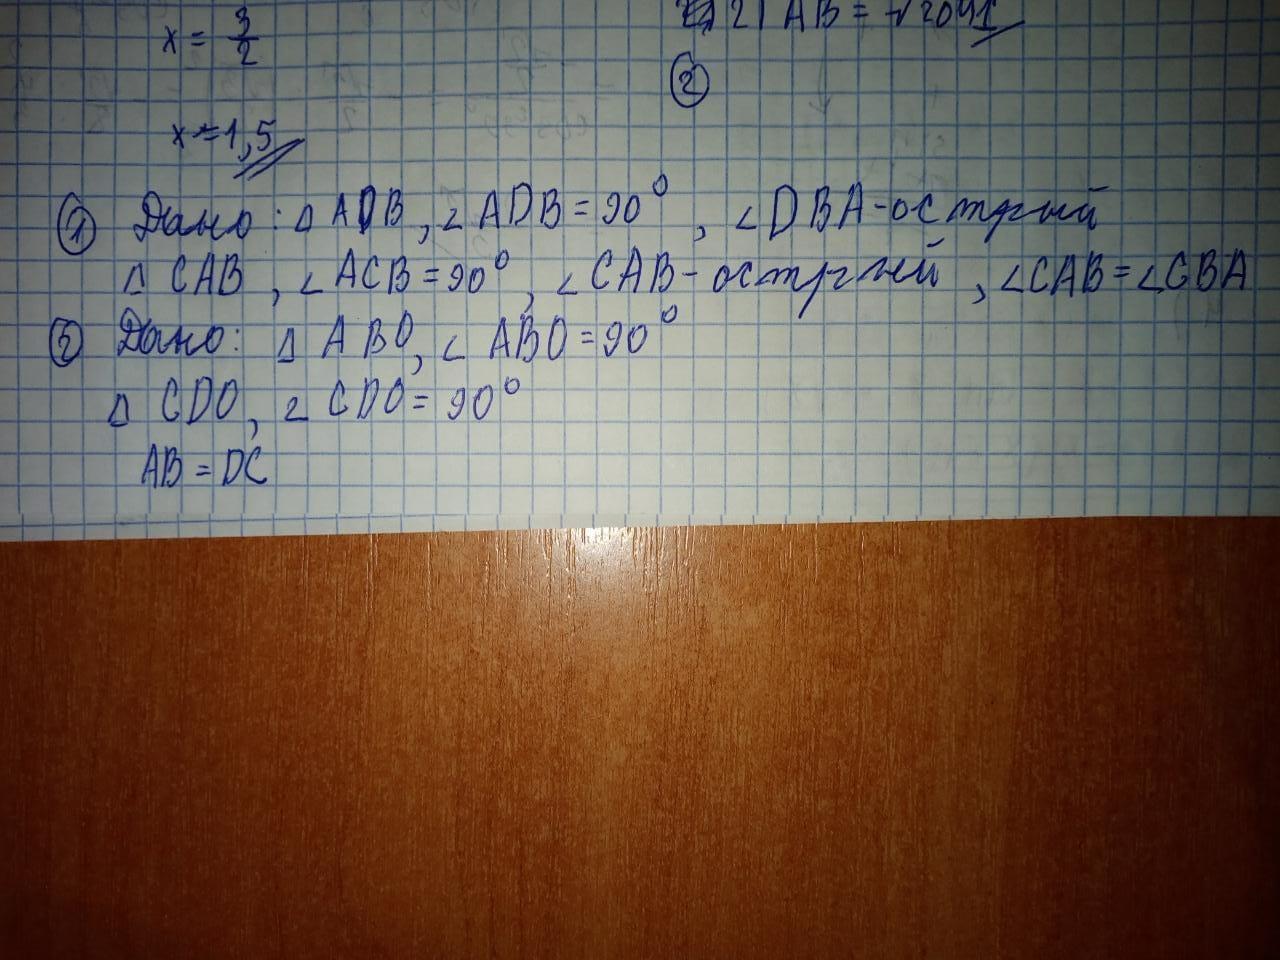 x = 3/2
2) AB = √2041
②
x = 1,5
① Дано: △ ADB, ∠ADB = 90°, ∠DBA - острый
△ CAB, ∠ACB = 90°, ∠CAB - острый, ∠CAB = ∠CBA
② Дано: △ ABO, ∠ABO = 90°
△ CDO, ∠CDO = 90°
AB = DC